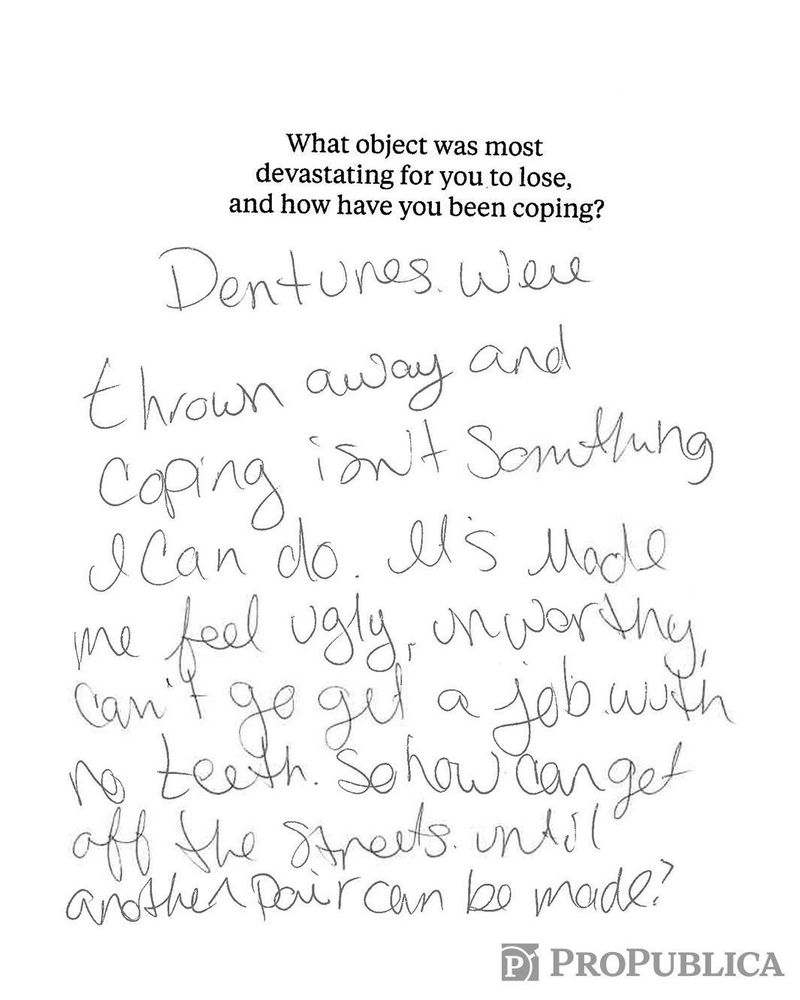 What object was most
devastating for you to lose,
and how have you been coping?
Dentures. Were
thrown away and
Coping isn't Something
I Can do. It's Made
me feel ugly, unworthy,
Can't go get a job with
no teeth. So how can get
off the Streets. until
another pair can be made?
PROPUBLICA